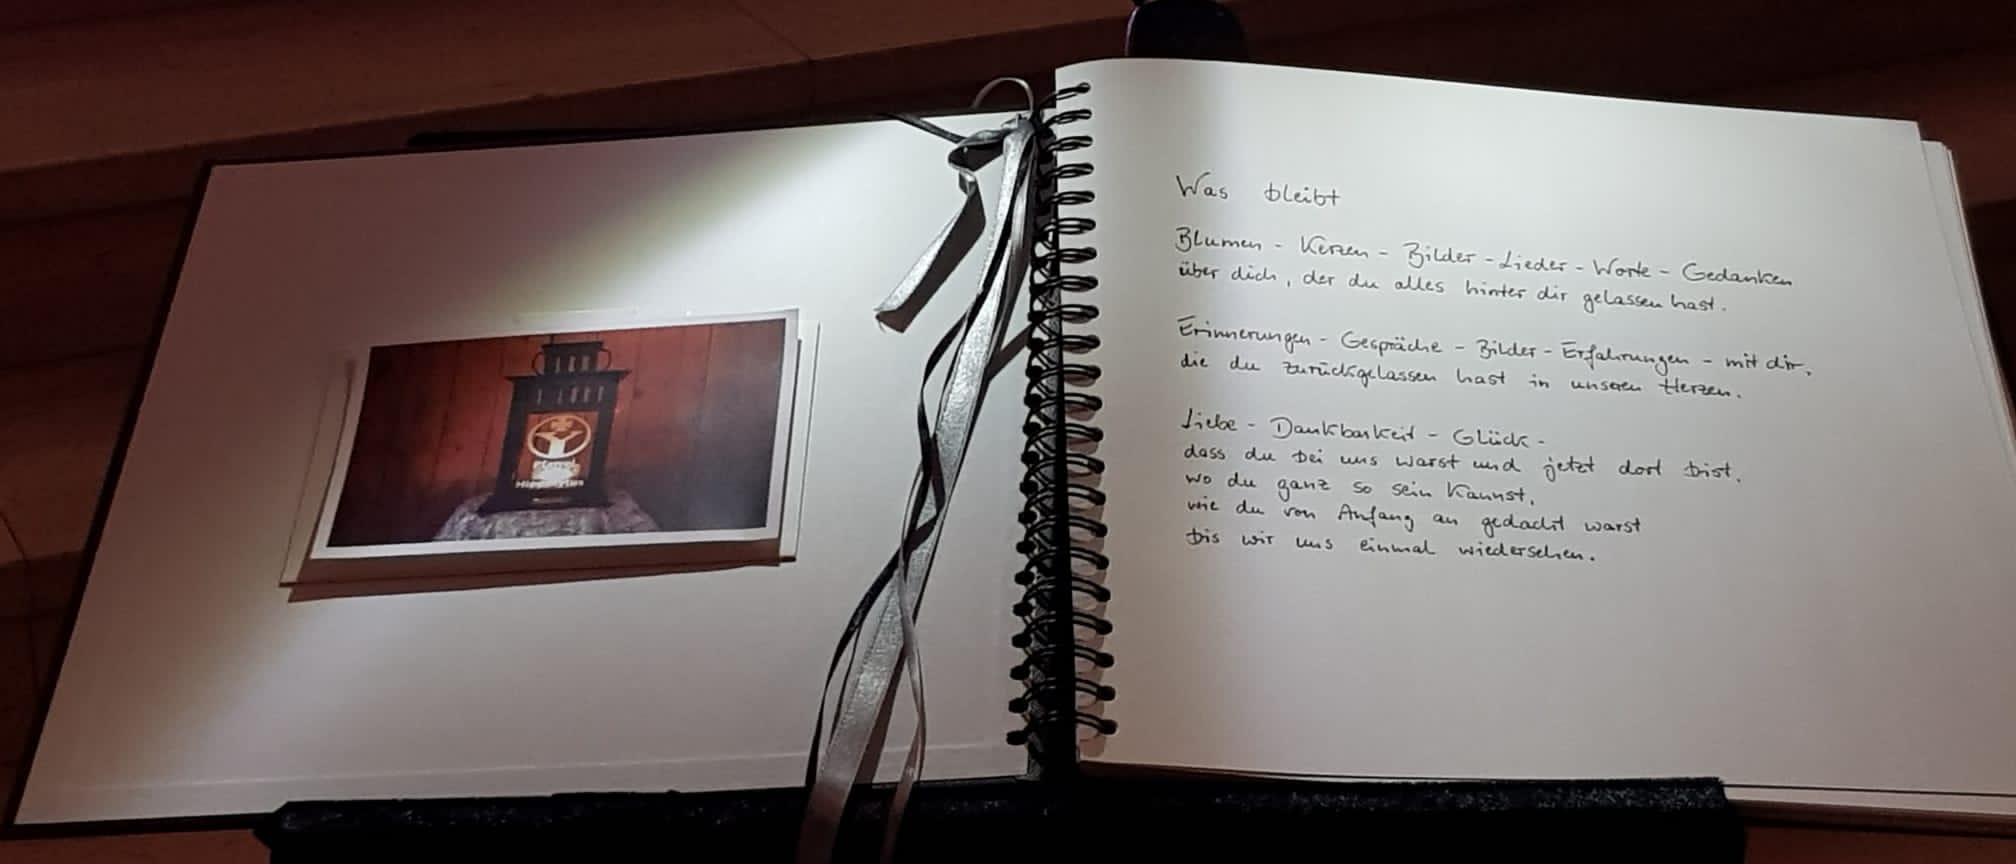 Hippolytus
Was bleibt
Blumen - Kerzen - Bilder - Lieder - Worte - Gedanken
über dich, der du alles hinter dir gelassen hast.
Erinnerungen - Gespräche - Bilder - Erfahrungen - mit dir,
die du zurückgelassen hast in unseren Herzen.
Liebe - Dankbarkeit - Glück -
dass du bei uns warst und jetzt dort bist,
wo du ganz so sein kannst,
wie du von Anfang an gedacht warst
bis wir uns einmal wiedersehen.